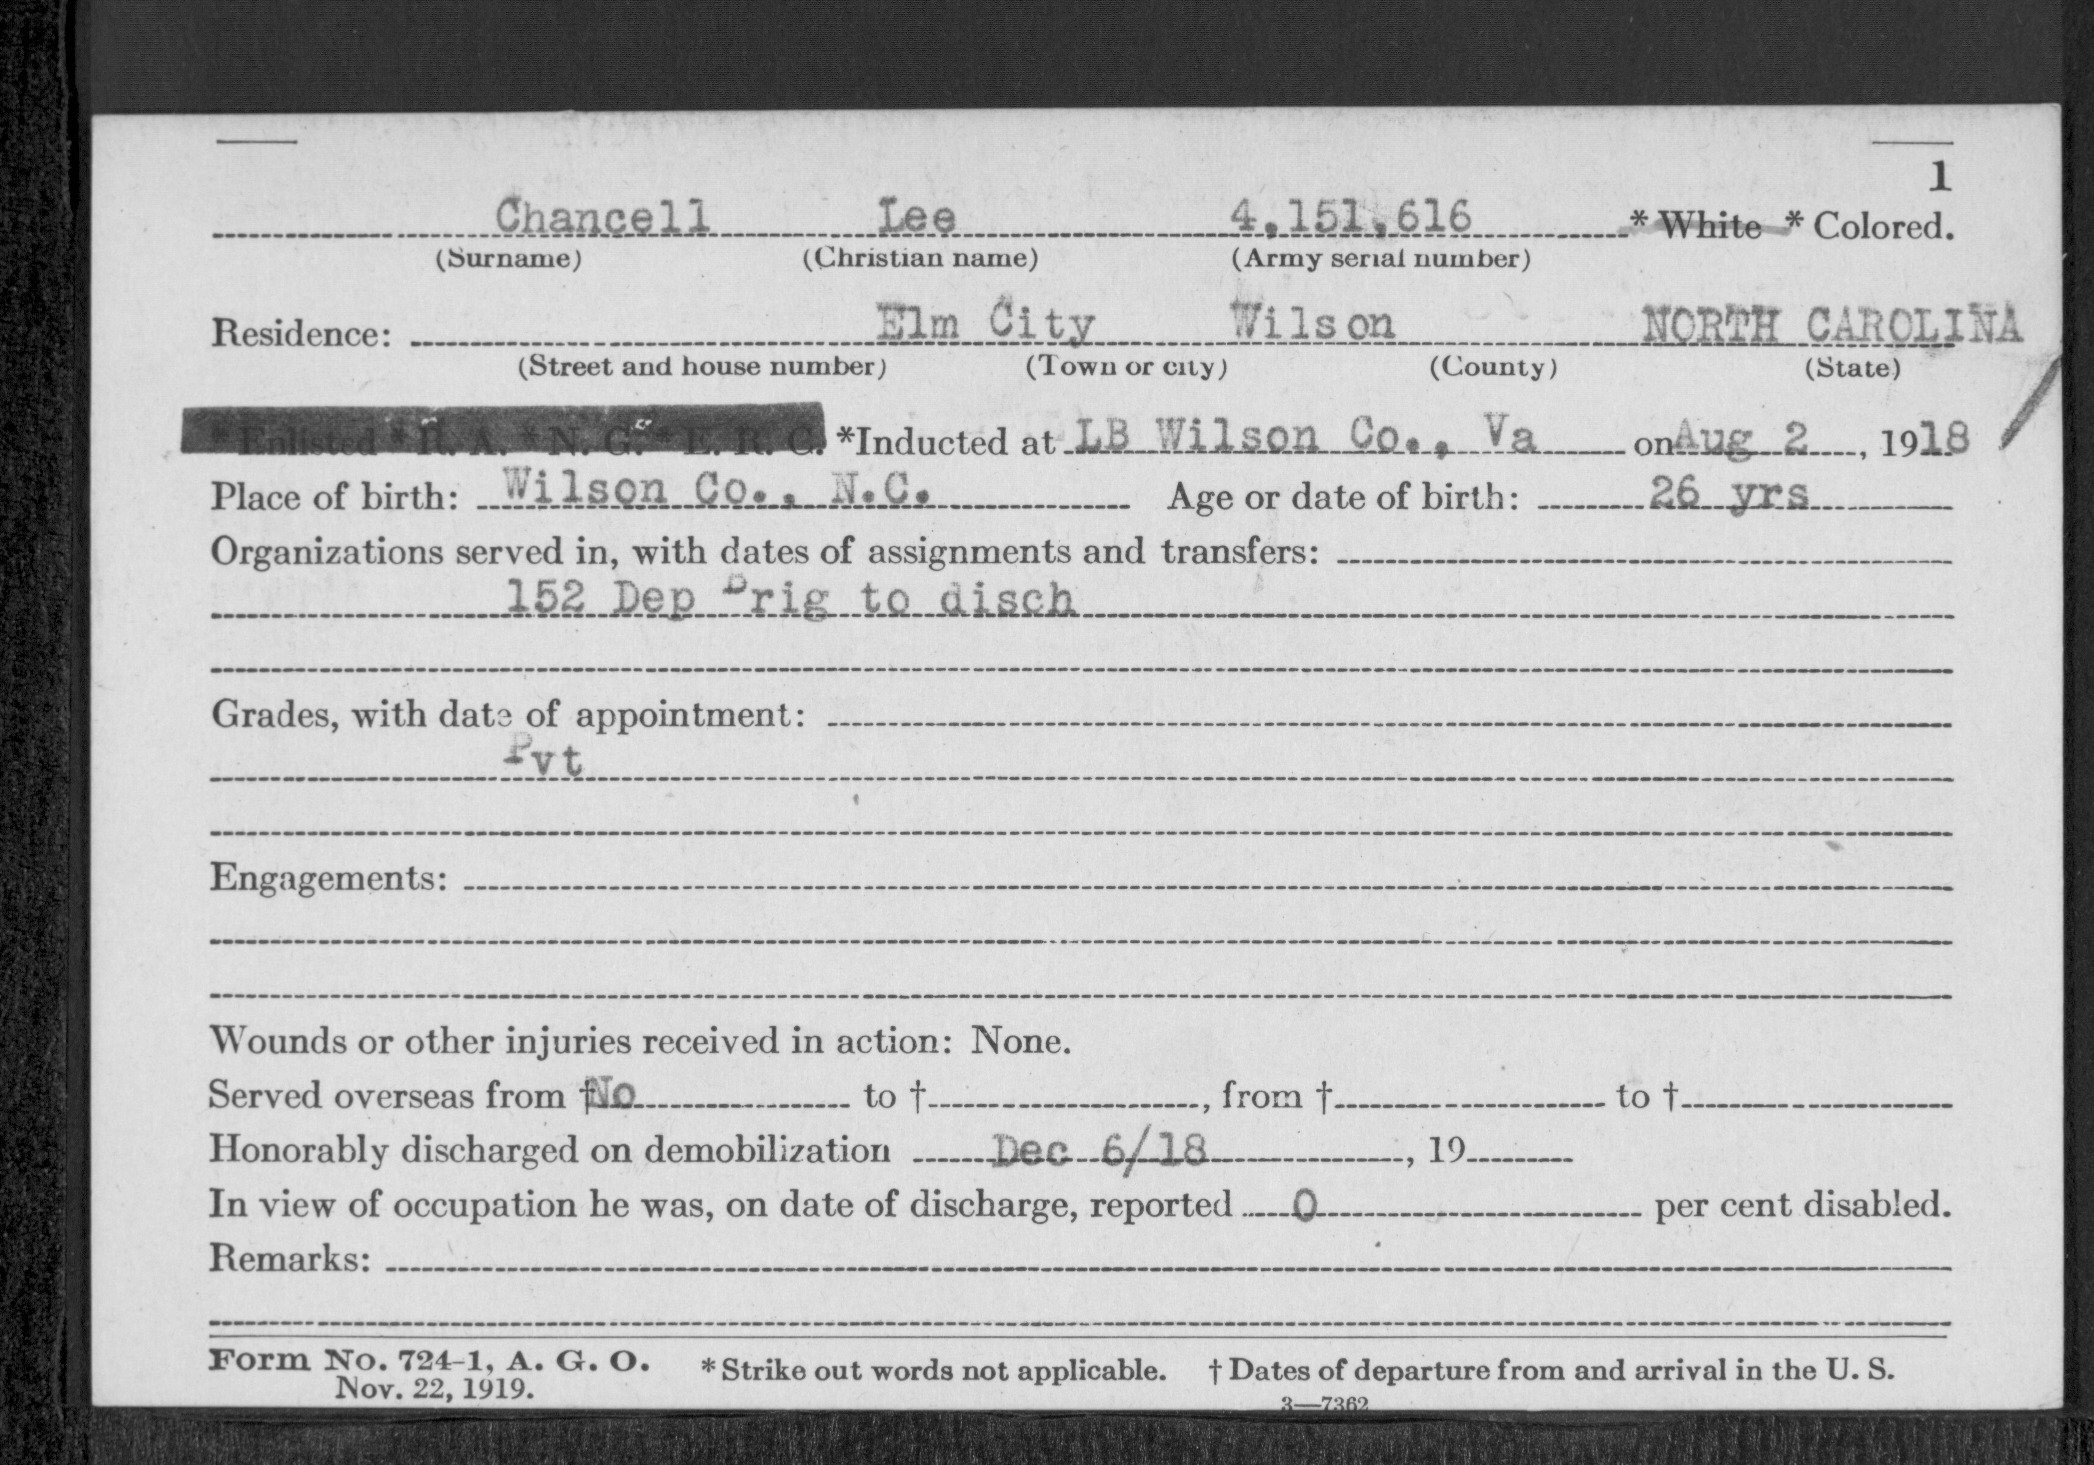 1
Chancell Lee 4,151,616 * White * Colored.
(Surname) (Christian name) (Army serial number)
Residence: Elm City Wilson NORTH CAROLINA
(Street and house number) (Town or city) (County) (State)
* Enlisted * R. A. * N. G. * E. R. C. *Inducted at LB Wilson Co., Va on Aug 2, 1918
Place of birth: Wilson Co., N.C. Age or date of birth: 26 yrs
Organizations served in, with dates of assignments and transfers:
152 Dep Brig to disch
Grades, with date of appointment:
Pvt
Engagements:
Wounds or other injuries received in action: None.
Served overseas from † No to †, from † to †
Honorably discharged on demobilization Dec 6/18, 19
In view of occupation he was, on date of discharge, reported 0 per cent disabled.
Remarks:
Form No. 724-1, A. G. O. * Strike out words not applicable. † Dates of departure from and arrival in the U. S.
Nov. 22, 1919.
3—7362